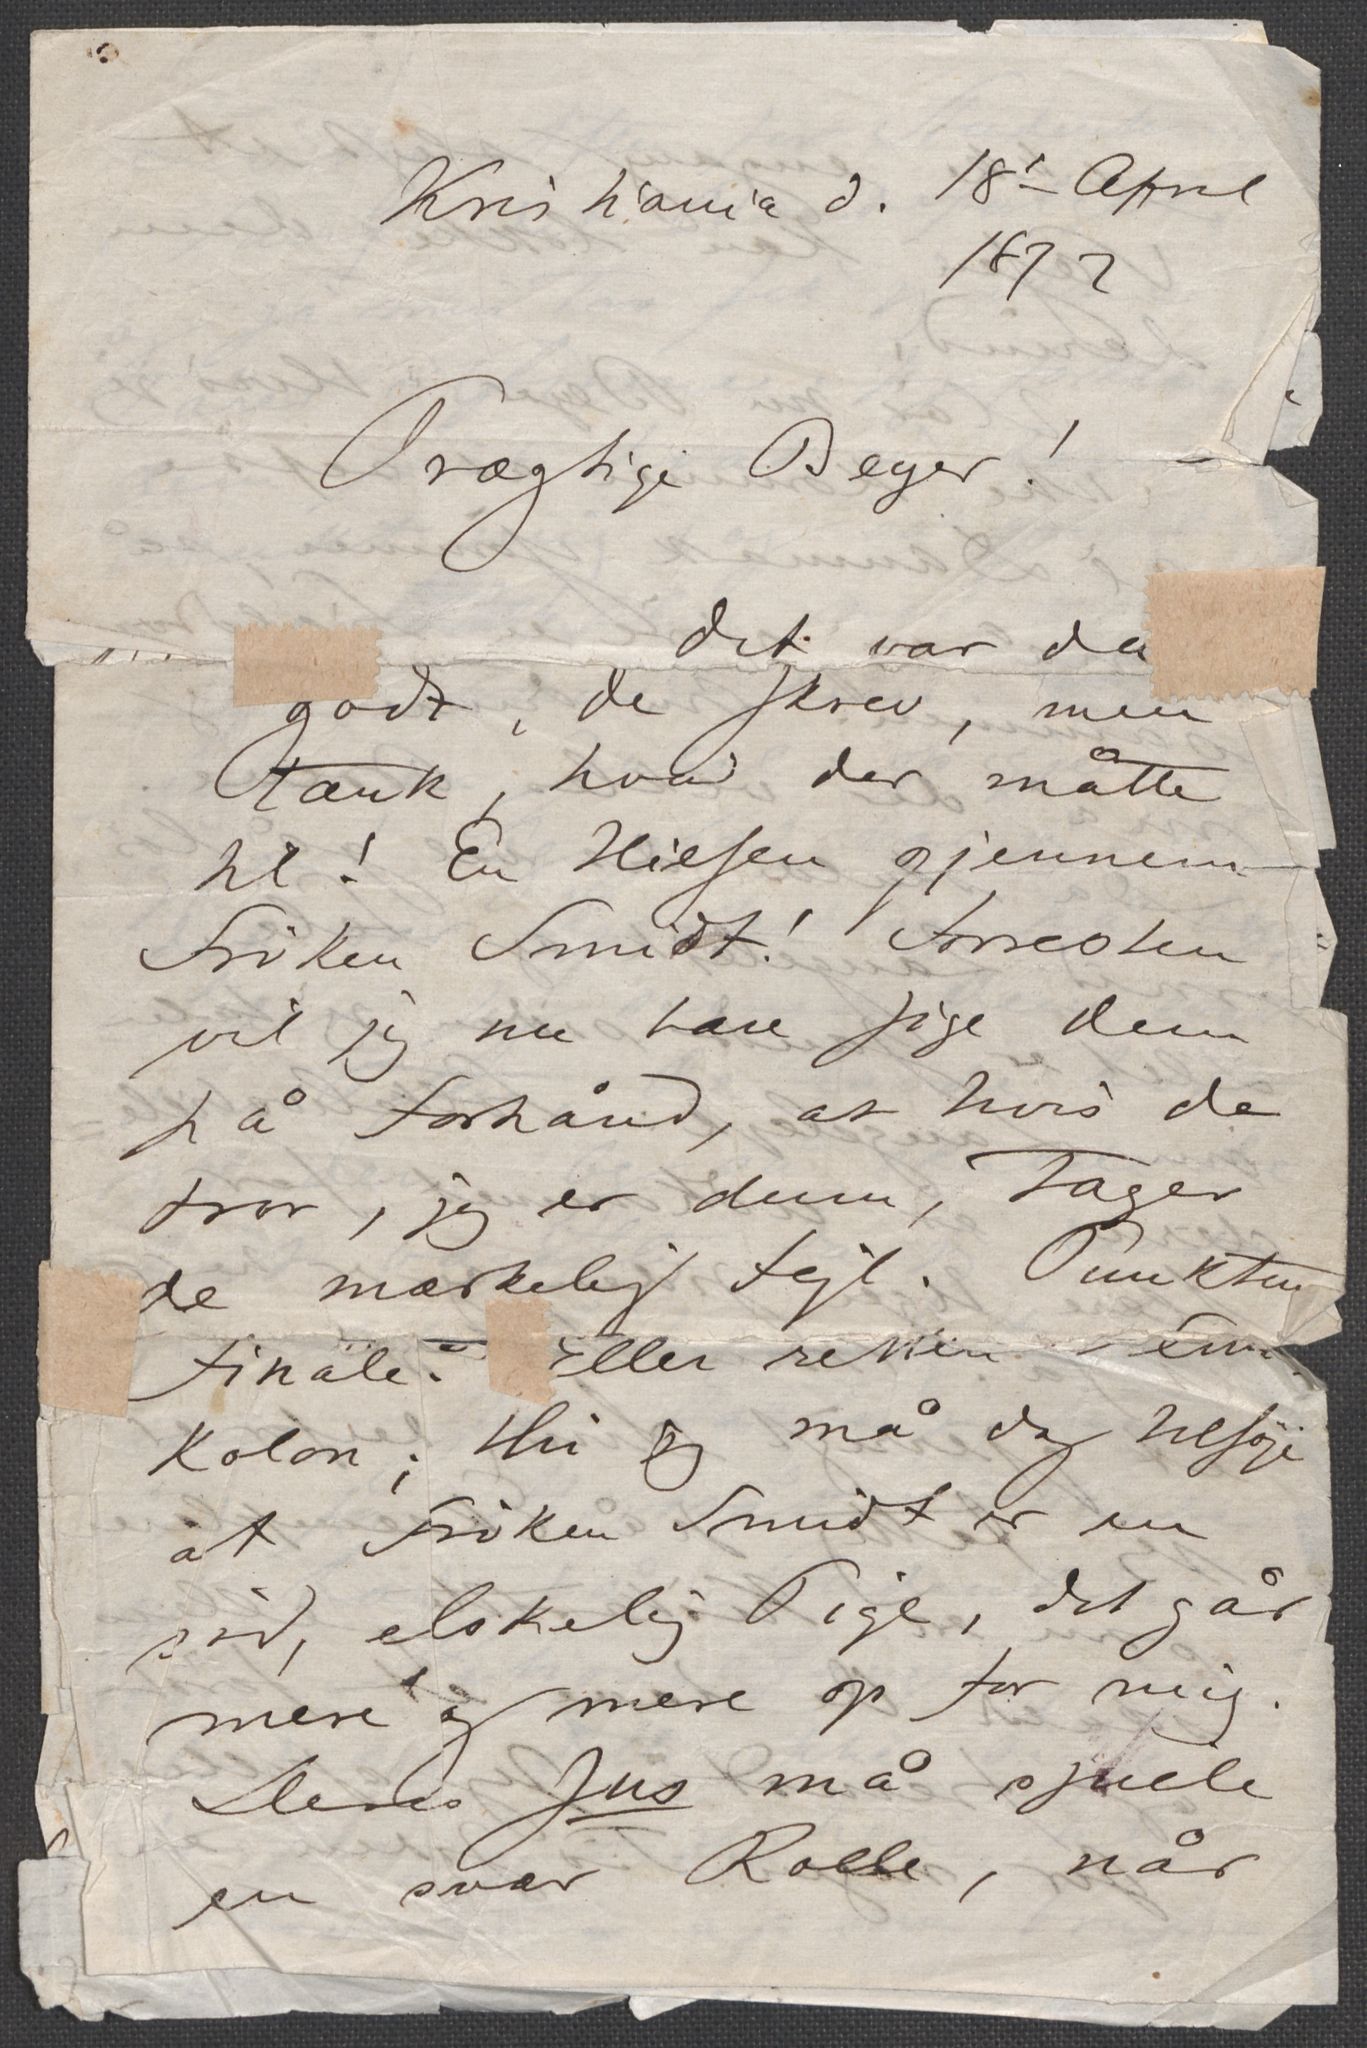 Kristiania d. 18' April
1872
Prægtige Beyer!
det var da
godt, de skrev, men
tænk, hvad der måtte
til! En Hilsen gjennem
Fröken Smidt! Forresten
vil jeg nu bare sige dem
på Forhånd, at hvis de
tror, jeg er dum, Tager
de mærkelig fejl. Punktum
finale. Eller rettere Semi
kolon; thi jeg må dog tilføje
at Fröken Smidt er en
söd, elskelig Pige, det går
mere og mere op for mig.
Deres Jus må spille
en svær Rolle, når